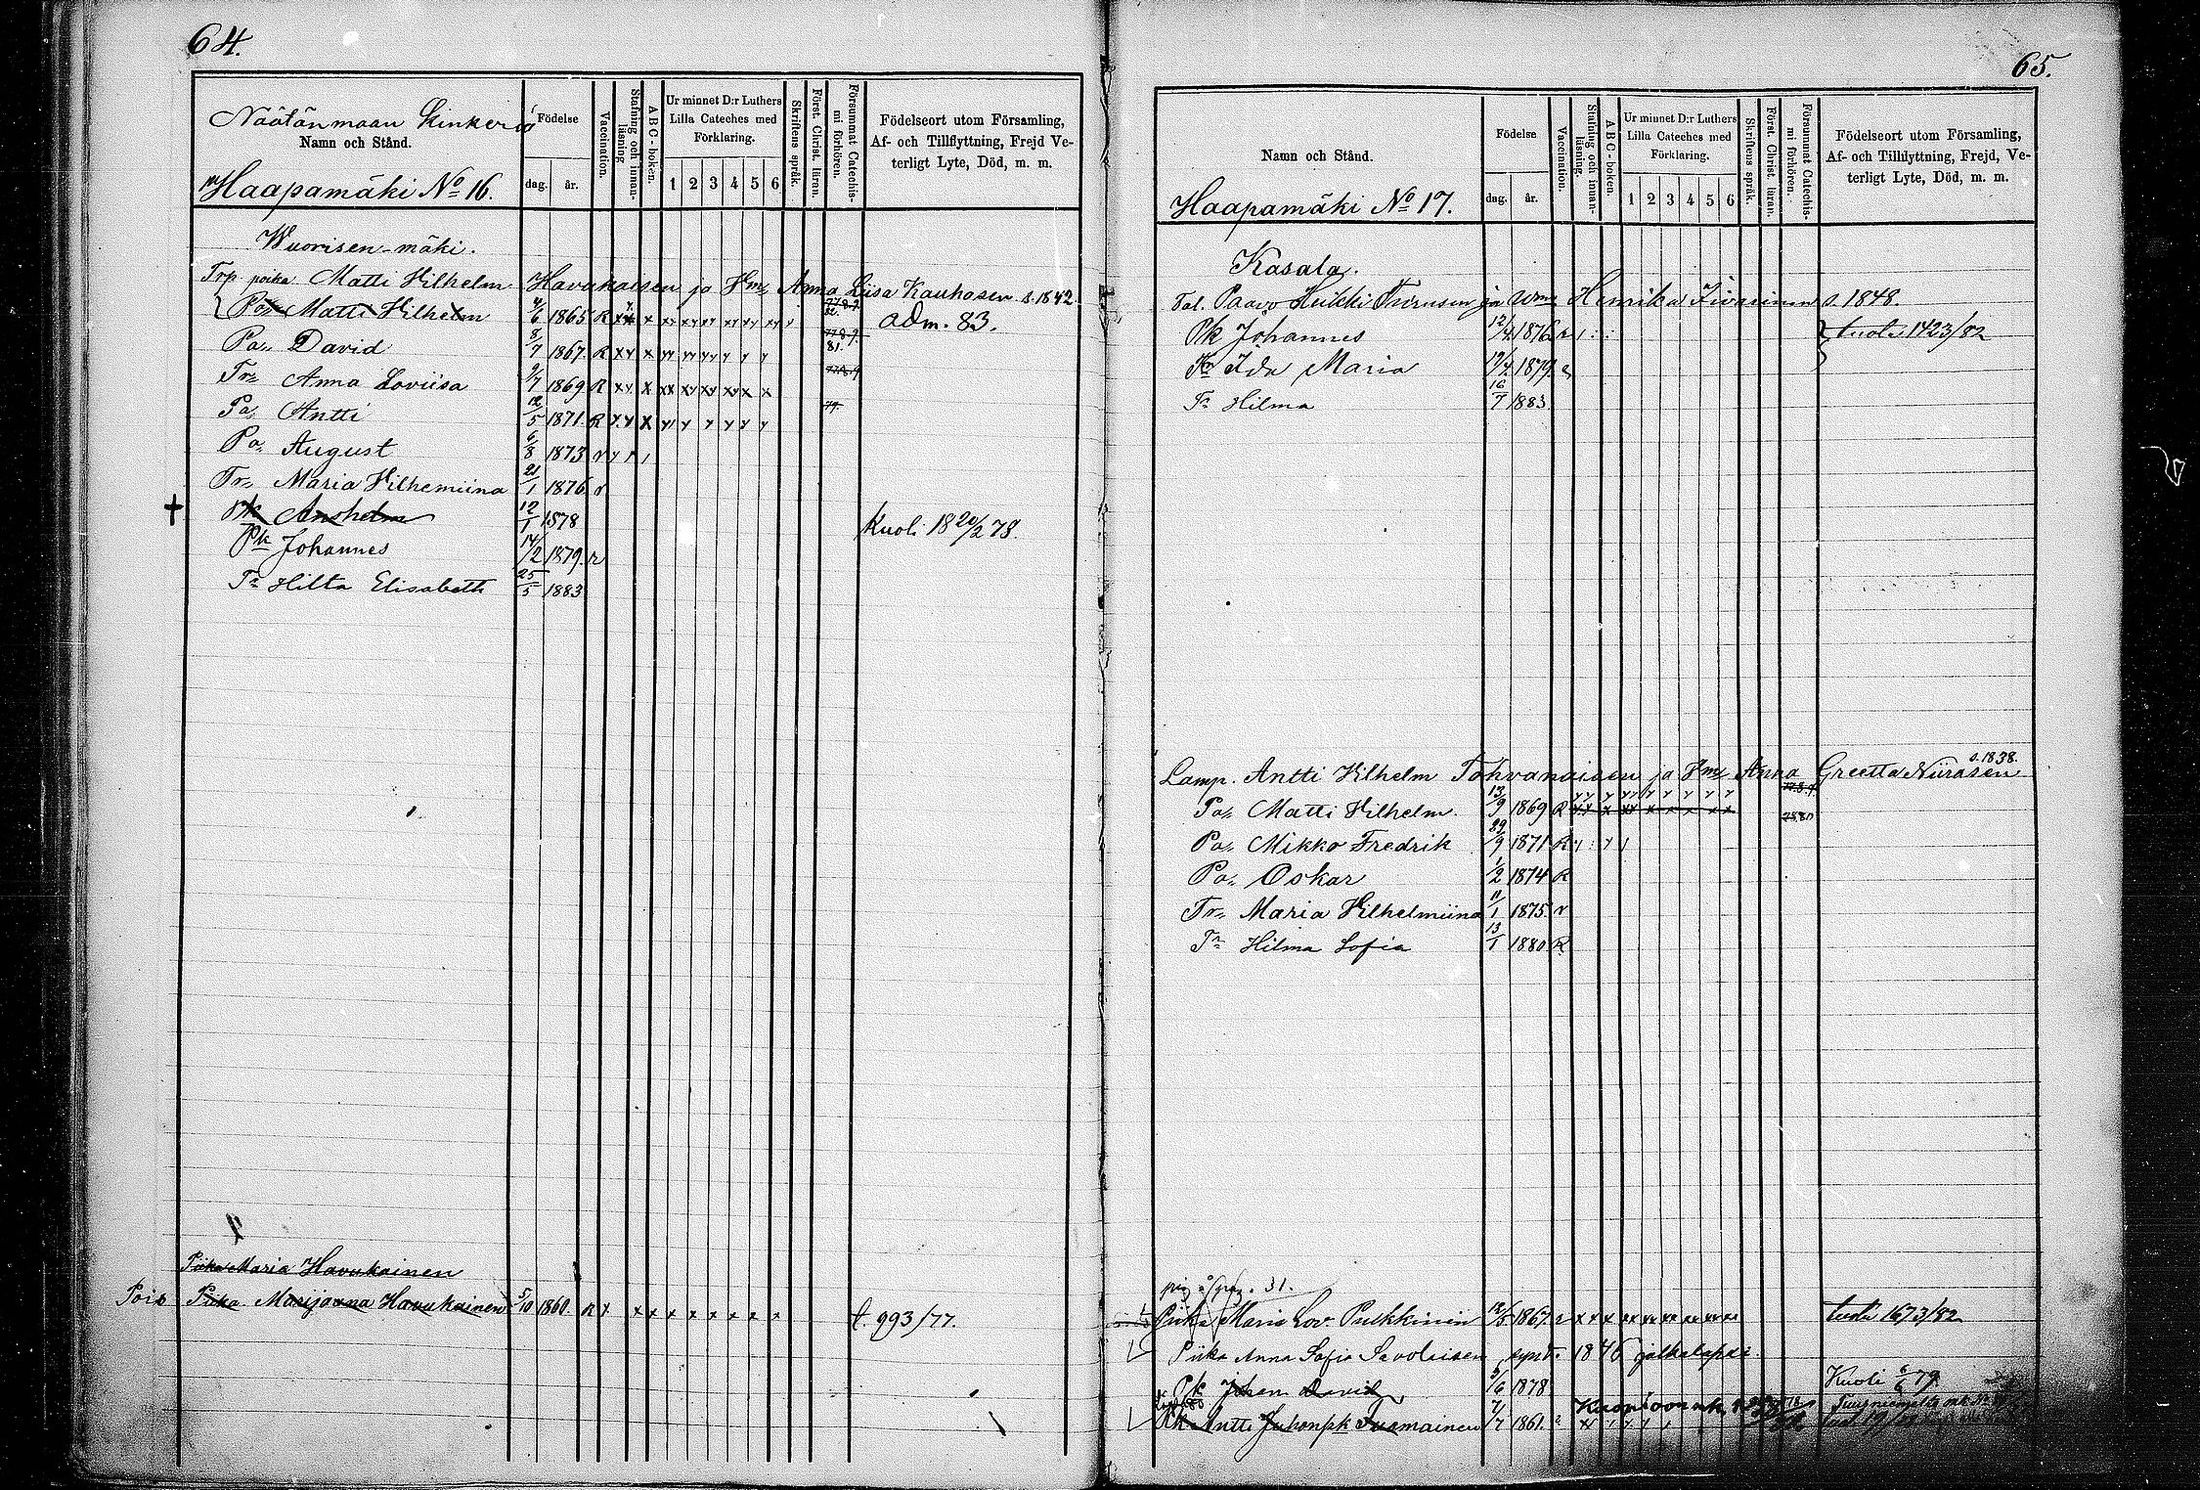 64.
Näätänmaan Kinkeriä
Namn och Stånd.
Haapamäki No 16.
Födelse
dag. år.
Vaccination.
Stafning och innanläsning
ABC-boken.
Ur minnet D:r Luthers
Lilla Cateches med
Förklaring.
1 2 3 4 5 6
Skriftens språk.
Först. Christ. läran.
Försummat Catechismi förhören.
Födelseort utom Församling,
Af- och Tillflyttning, Frejd Ve-
terligt Lyte, Död, m. m.
Wuorisen-mäki.
Trp. poika Matti Vilhelm Havukaisen ja Vmx Anna Liisa Kauhosen s. 1842.
Po Matti Vilhelm 4/6 1865 R adm. 83.
Po David 8/7 1867. R 81.
Tr Anna Loviisa 2/7 1869 R
Po Antti 12/5 1871. R 79.
Po August 6/8 1873
Tr Maria Vilhemiina 21/1 1876
† Pk Anshelm 12/1 1878 Kuoli 18 20/2 78.
Pk Johannes 14/2 1879. r
Tr Hilta Elisabeth 25/5 1883
Piika Maria Havukainen
Pois Piika Marijaana Havukainen 5/10 1860. R t. 993/77.
65.
Namn och Stånd.
Haapamäki No 17.
Födelse
dag. år.
Vaccination.
Stafning och innanläsning.
ABC-boken.
Ur minnet D:r Luthers
Lilla Cateches med
Förklaring.
1 2 3 4 5 6
Skriftens språk.
Först. Christ. läran.
Försummat Catechismi förhören.
Födelseort utom Församling,
Af- och Tillflyttning, Frejd, Ve-
terligt Lyte, Död, m. m.
Kasala.
Tal. Paavo Heikki Turusen ja Wmx Henrika s. 1848.
Pk Johannes 12/4 1876 r tuoli 1423/82
Tr Ida Maria 1879
Tr Hilma 16/7 1883.
Lamp. Antti Vilhelm Tahvanaisen ja Vmx Anna Greetta Niirasen s. 1838.
Po Matti Vilhelm. 13/9 1869 R
Po Mikko Fredrik 29/9 1871 R
Po Oskar 1/2 1874 R
Tr Maria Vilhelmiina 11/1 1875. r
Tr Hilma Sofia 13/1 1880. R
pag. 31.
Piika Maria Lov. Pulkkinen 12/5 1867. tuoli 1673/82
Piika Anna Sofia Savolaisen synt. 1846 jalkalapsi
Pk Johan David 5/6 1878 Kuoli 79
Pk Antti Juhonpk Tuomainen 7/7 1861.